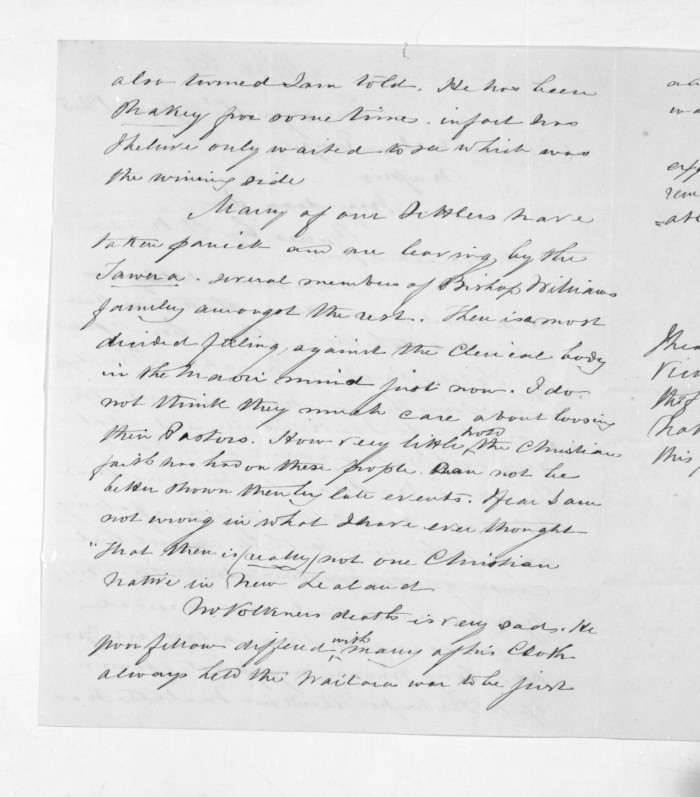 also turned I am told. He has been
shakey for some time. infact has
I beleive only waited to see which was
the wining side
Many of our Settlers have
taken panick and are leaving by the
Tawera. several members of Bishop Williams
family amongst the rest. There is a most
divided feeling, against the Clerical body
in the Maori mind just now. I do
not think they much care about loosing
their Pastors. How very little hold the Christian
faith has had on these people can not be
better shown then by late events. I fear I am
not wrong in what I have ever thought
"That there is (really) not one Christian
native in New Zealand
Mr Volkners death is very sad. He
poor fellow differed with many of his Cloth
always held the Waitara war to be just